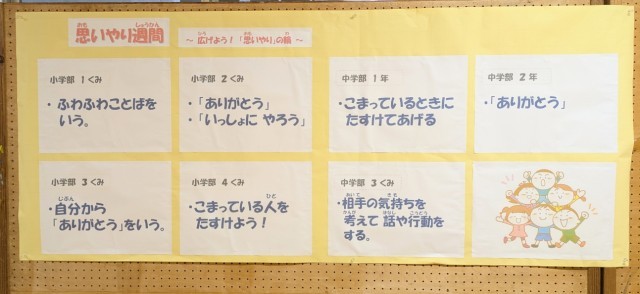 思いやり週間
～ 広げよう！「思いやり」の輪 ～
小学部 1くみ
・ふわふわことばを
いう。
小学部 2くみ
・「ありがとう」
・「いっしょに やろう」
中学部 1年
・こまっているときに
たすけてあげる
中学部 2年
・「ありがとう」
小学部 3くみ
・自分から
「ありがとう」をいう。
小学部 4くみ
・こまっている人を
たすけよう！
中学部 3くみ
・相手の気持ちを
考えて 話や行動を
する。